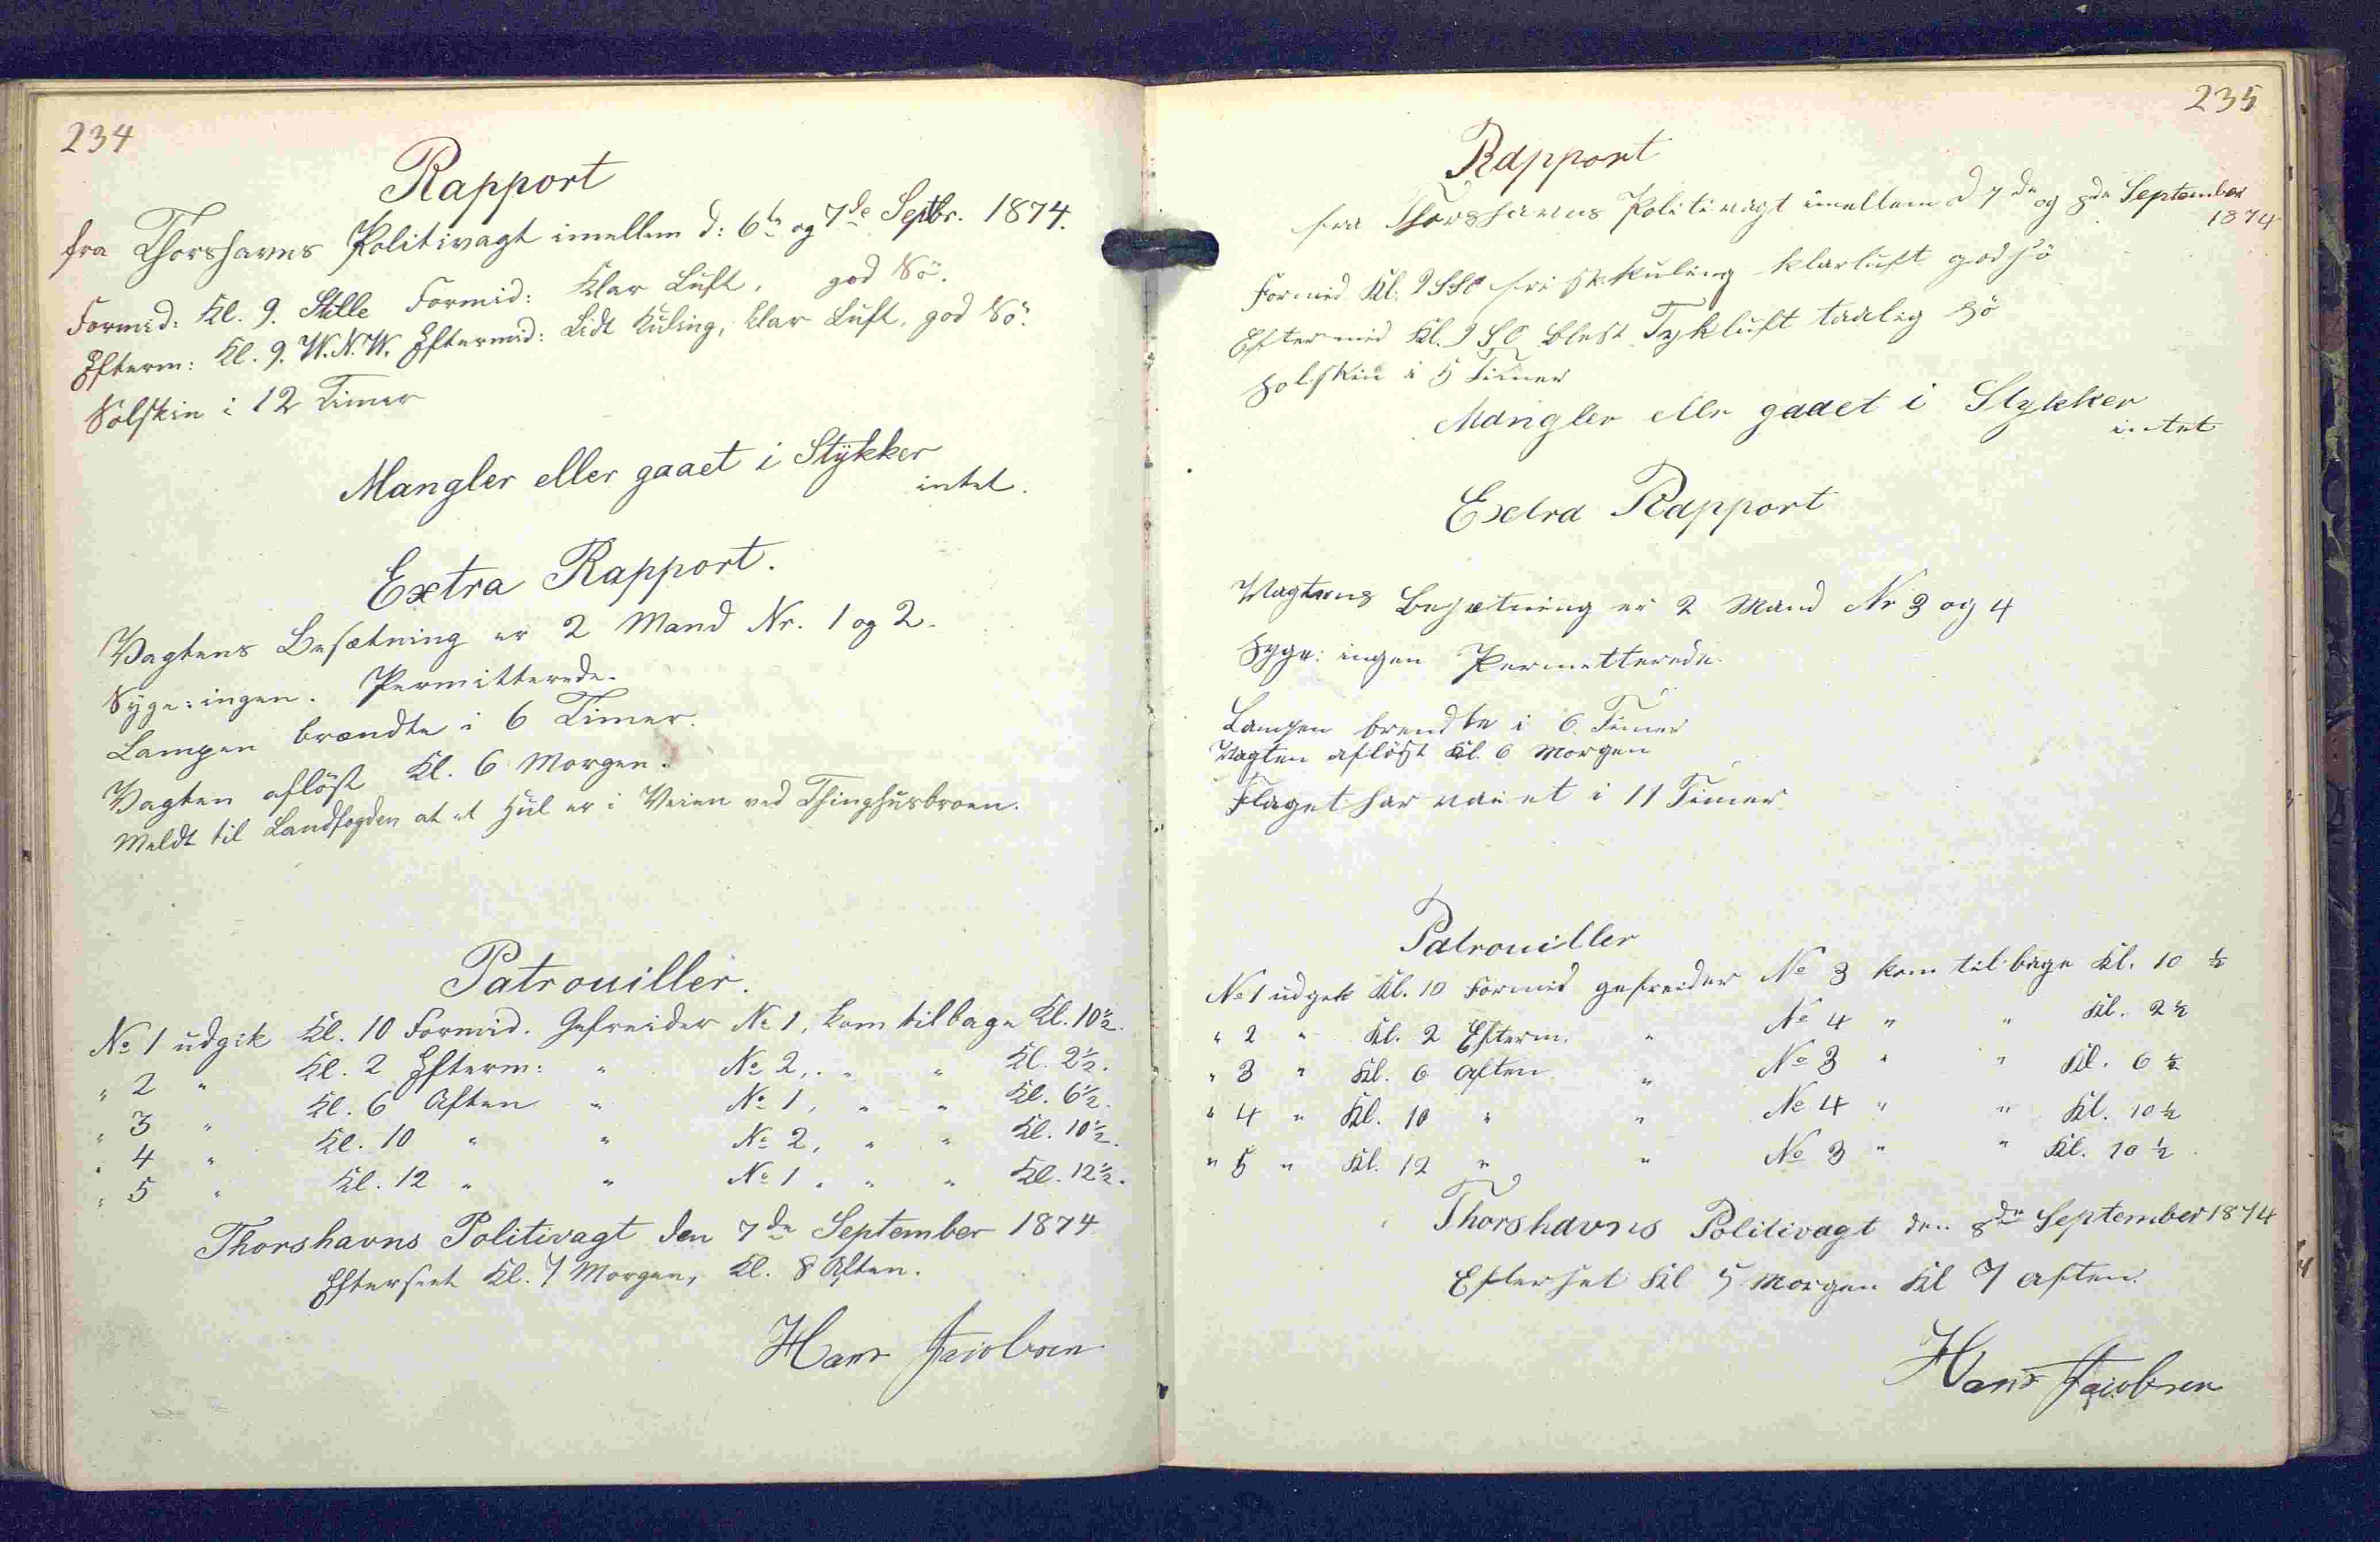 234
Rapport
fra Thorshavns Politivagt imellem d: 6te og 7de Septbr. 1874.
Formid: Kl. 9. Stille Formid: Klar Luft, god Sö.
Efterm: Kl. 9. W.N.W. Eftermid: Lidt Kuling, klar Luft, god Sö.
Solskin i 12 Timer
Mangler eller gaaet i Stÿkker
intet.
Extra Rapport.
Vagtens Besætning er 2 Mand Nr. 1 og 2.
Syge: ingen. Permitterede.
Lampen brændte i 6 Timer.
Vagten aflöst Kl. 6 Morgen.
Meldt til Landfogden at et Hul er i Veien ved Thinghusbroen.
Patrouiller.
No 1 udgik Kl. 10 Formid. Gefreider No 1, kom tilbage Kl. 10½.
" 2 " Kl. 2 Efterm: " No 2, " " Kl. 2½.
" 3 " Kl. 6 Aften " No 1, " " Kl. 6½.
" 4 " Kl. 10 " " No 2, " " Kl. 10½.
" 5 " Kl. 12 " " No 1, " " Kl. 12½.
Thorshavns Politivagt den 7de September 1874
Efterseet Kl. 7 Morgen, Kl. 8 Aften.
Hans Jacobsen
235
Rapport
fra Thorshavns Politivagt imellem d 7de og 8de September
1874
Formid Kl. 9 SSO frisk Kuling klarluft god sö
Eftermid Kl. 9 SO blest Tykluft taalig sö
solskin i 5 Timer
Mangler eller gaaet i Stykker
intet
Extra Rapport
Vagtens Besætning er 2 Mand Nr 3 og 4
Syge: ingen Permetterede.
Lampen brendte i 6. Timer
Vagten aflöst Kl. 6 Morgen
Flaget har vaiet i 11 Timer
Patrouiller
No 1 udgik Kl. 10 Formid gefreider No 3 kom tilbage Kl. 10 ½
" 2 " Kl. 2 Efterm. " No 4 " " Kl. 2½
" 3 " Kl. 6 Aften " No 3 " " Kl. 6 ½
" 4 " Kl. 10 " " No 4 " " Kl. 10½
" 5 " Kl. 12 " " No 3 " " Kl. 10 ½
Thorshavns Politivagt den 8de September 1874
Efterset Kl 5 Morgen Kl 7 Aften.
Hans Jacobsen